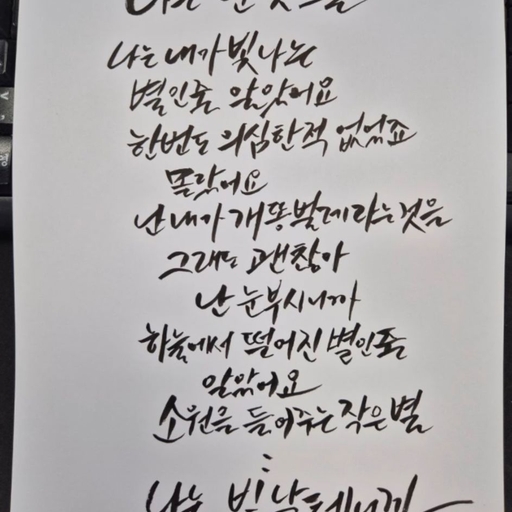 나는 내가 빛나는
별인줄 알았어요
한번도 의심한적 없었죠
몰랐어요
난 내가 개똥벌레라는것을
그래도 괜찮아
난 눈부시니까
하늘에서 떨어진 별인줄
알았어요
소원을 들어주는 작은별
:
나는 빛날테니까